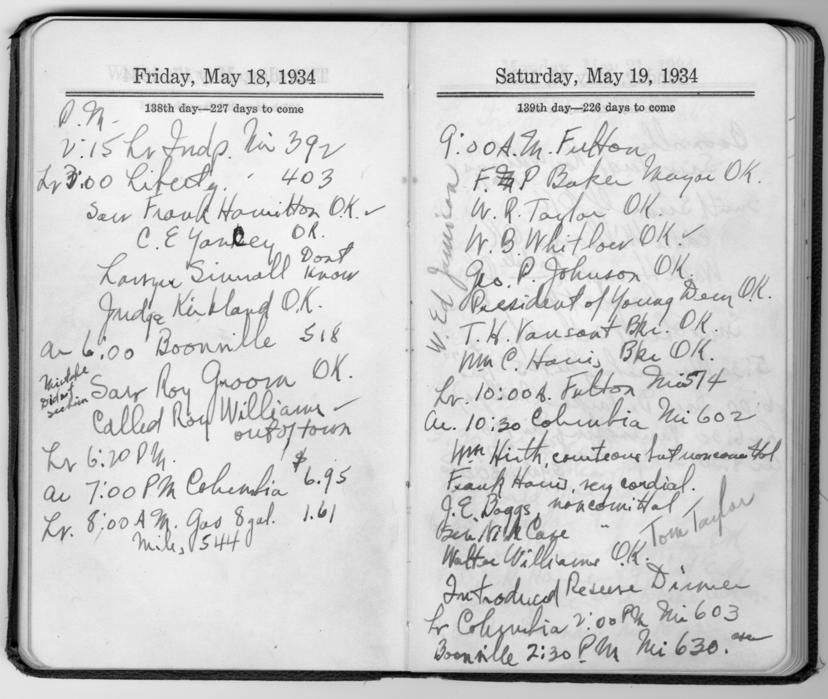 Friday, May 18, 1934
138th day—227 days to come
P.M.
2:15 Lv Indp. Mi 392
Lv 3:00 Liberty. " 403
Saw Frank Hamilton O.K. ✓
C. E Yancey OK.
Lawyer Simrall Dont know
Judge Kirkland O.K.
Ar 6:00 Boonville 518
Mistake Didnt see him
Saw Roy Groom OK.
Called Roy Williams ✓
out of town
Lv 6:20 P.M.
Ar 7:00 PM Columbia $6.95
Lv. 8:00 A.M. Gas 8 gal. 1.61
Miles 544
Saturday, May 19, 1934
139th day—226 days to come
9:00 A.M. Fulton
F. P Baker Mayor OK.
W. Ed Jamison
W. R. Taylor OK.
W. B Whitlow OK. ✓
Geo. P. Johnson OK.
President of Young Dem OK.
T. H. Vansant Bkr. OK.
Wm C. Harris Bkr OK.
Lv. 10:00 A. Fulton Mi 574
Ar. 10:30 Columbia Mi 602
Wm Hirth, courteous but noncomittal
Frank Harris, very cordial.
J. E. Boggs, noncomittal
Cave "
Tom Taylor
Walter Williams O.K.
Introduced Reserve Dinner
Lv Columbia 2:00 PM Mi 603
Boonville 2:30 P.M Mi 630.